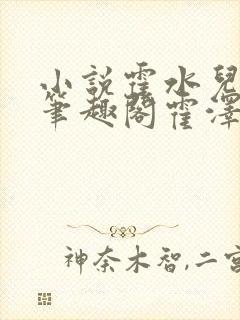 小說霍水兒
筆趣閣霍澤
神奈木智,二宮